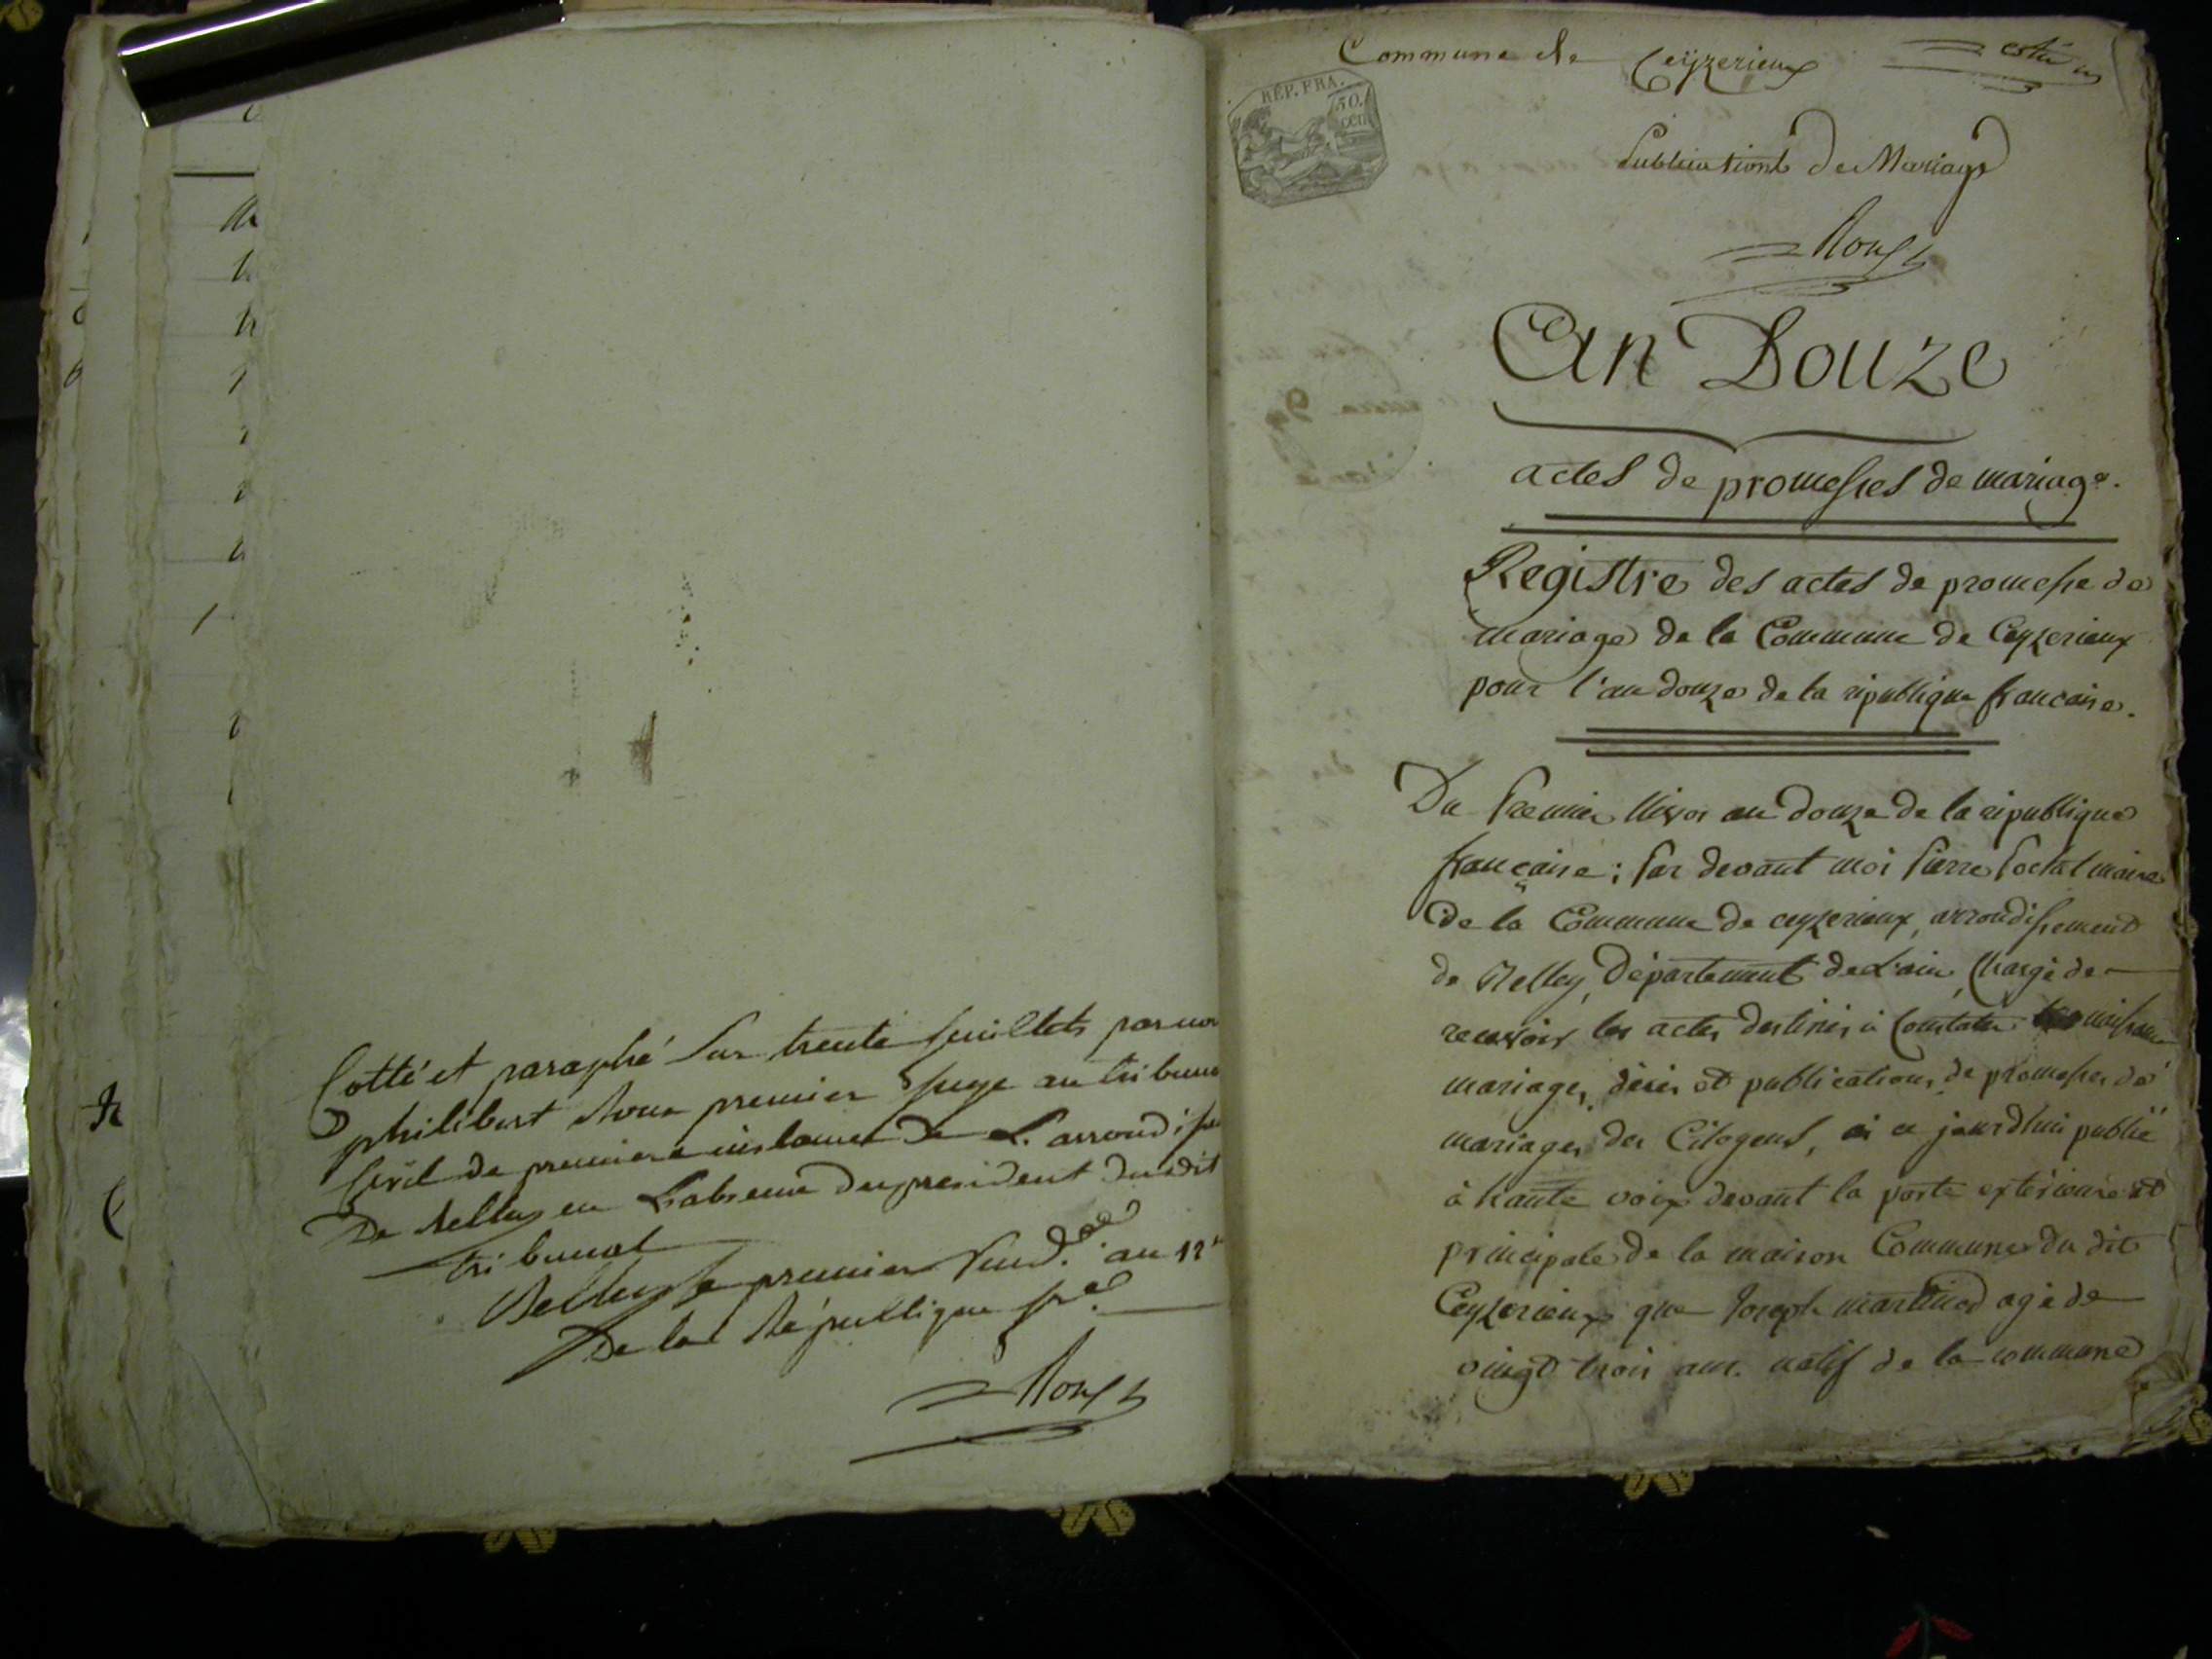 Cotté et paraphé Sur trente feuillets par moi
philibert Roux premier Juge au tribunal
Civil de premiere instance De L'arrondisse
De Belley en L'absence du president dudit
tribunal
Belley le premier Vend.re an 12e
De la République fse
Roux
Commune de Ceÿzerieux
RÉP. FRA.
50.
cen
Publications de Mariage
Roux
An Douze
actes de promesses de mariage.
Registre des actes de promesse de
mariage de la Commune de Ceyzerieux
pour l'an douze de la république francaise.
Du Premier Nivos an douze de la république
française; Par devant moi Pierre Pochet maire
de la Commune de ceyzerieux, arrondissement
de Belley, Département de L'ain, Chargé de
recevoir les actes destinés à Constater naissance
mariages, décès et publications de promesses de
mariages des Citoyens, ai ce jourdhui publié
à haute voix devant la porte extérieure et
principale de la maison Commune du dit
Ceyzerieux que Joseph martinod agé de
vingt trois ans. natif de la commune